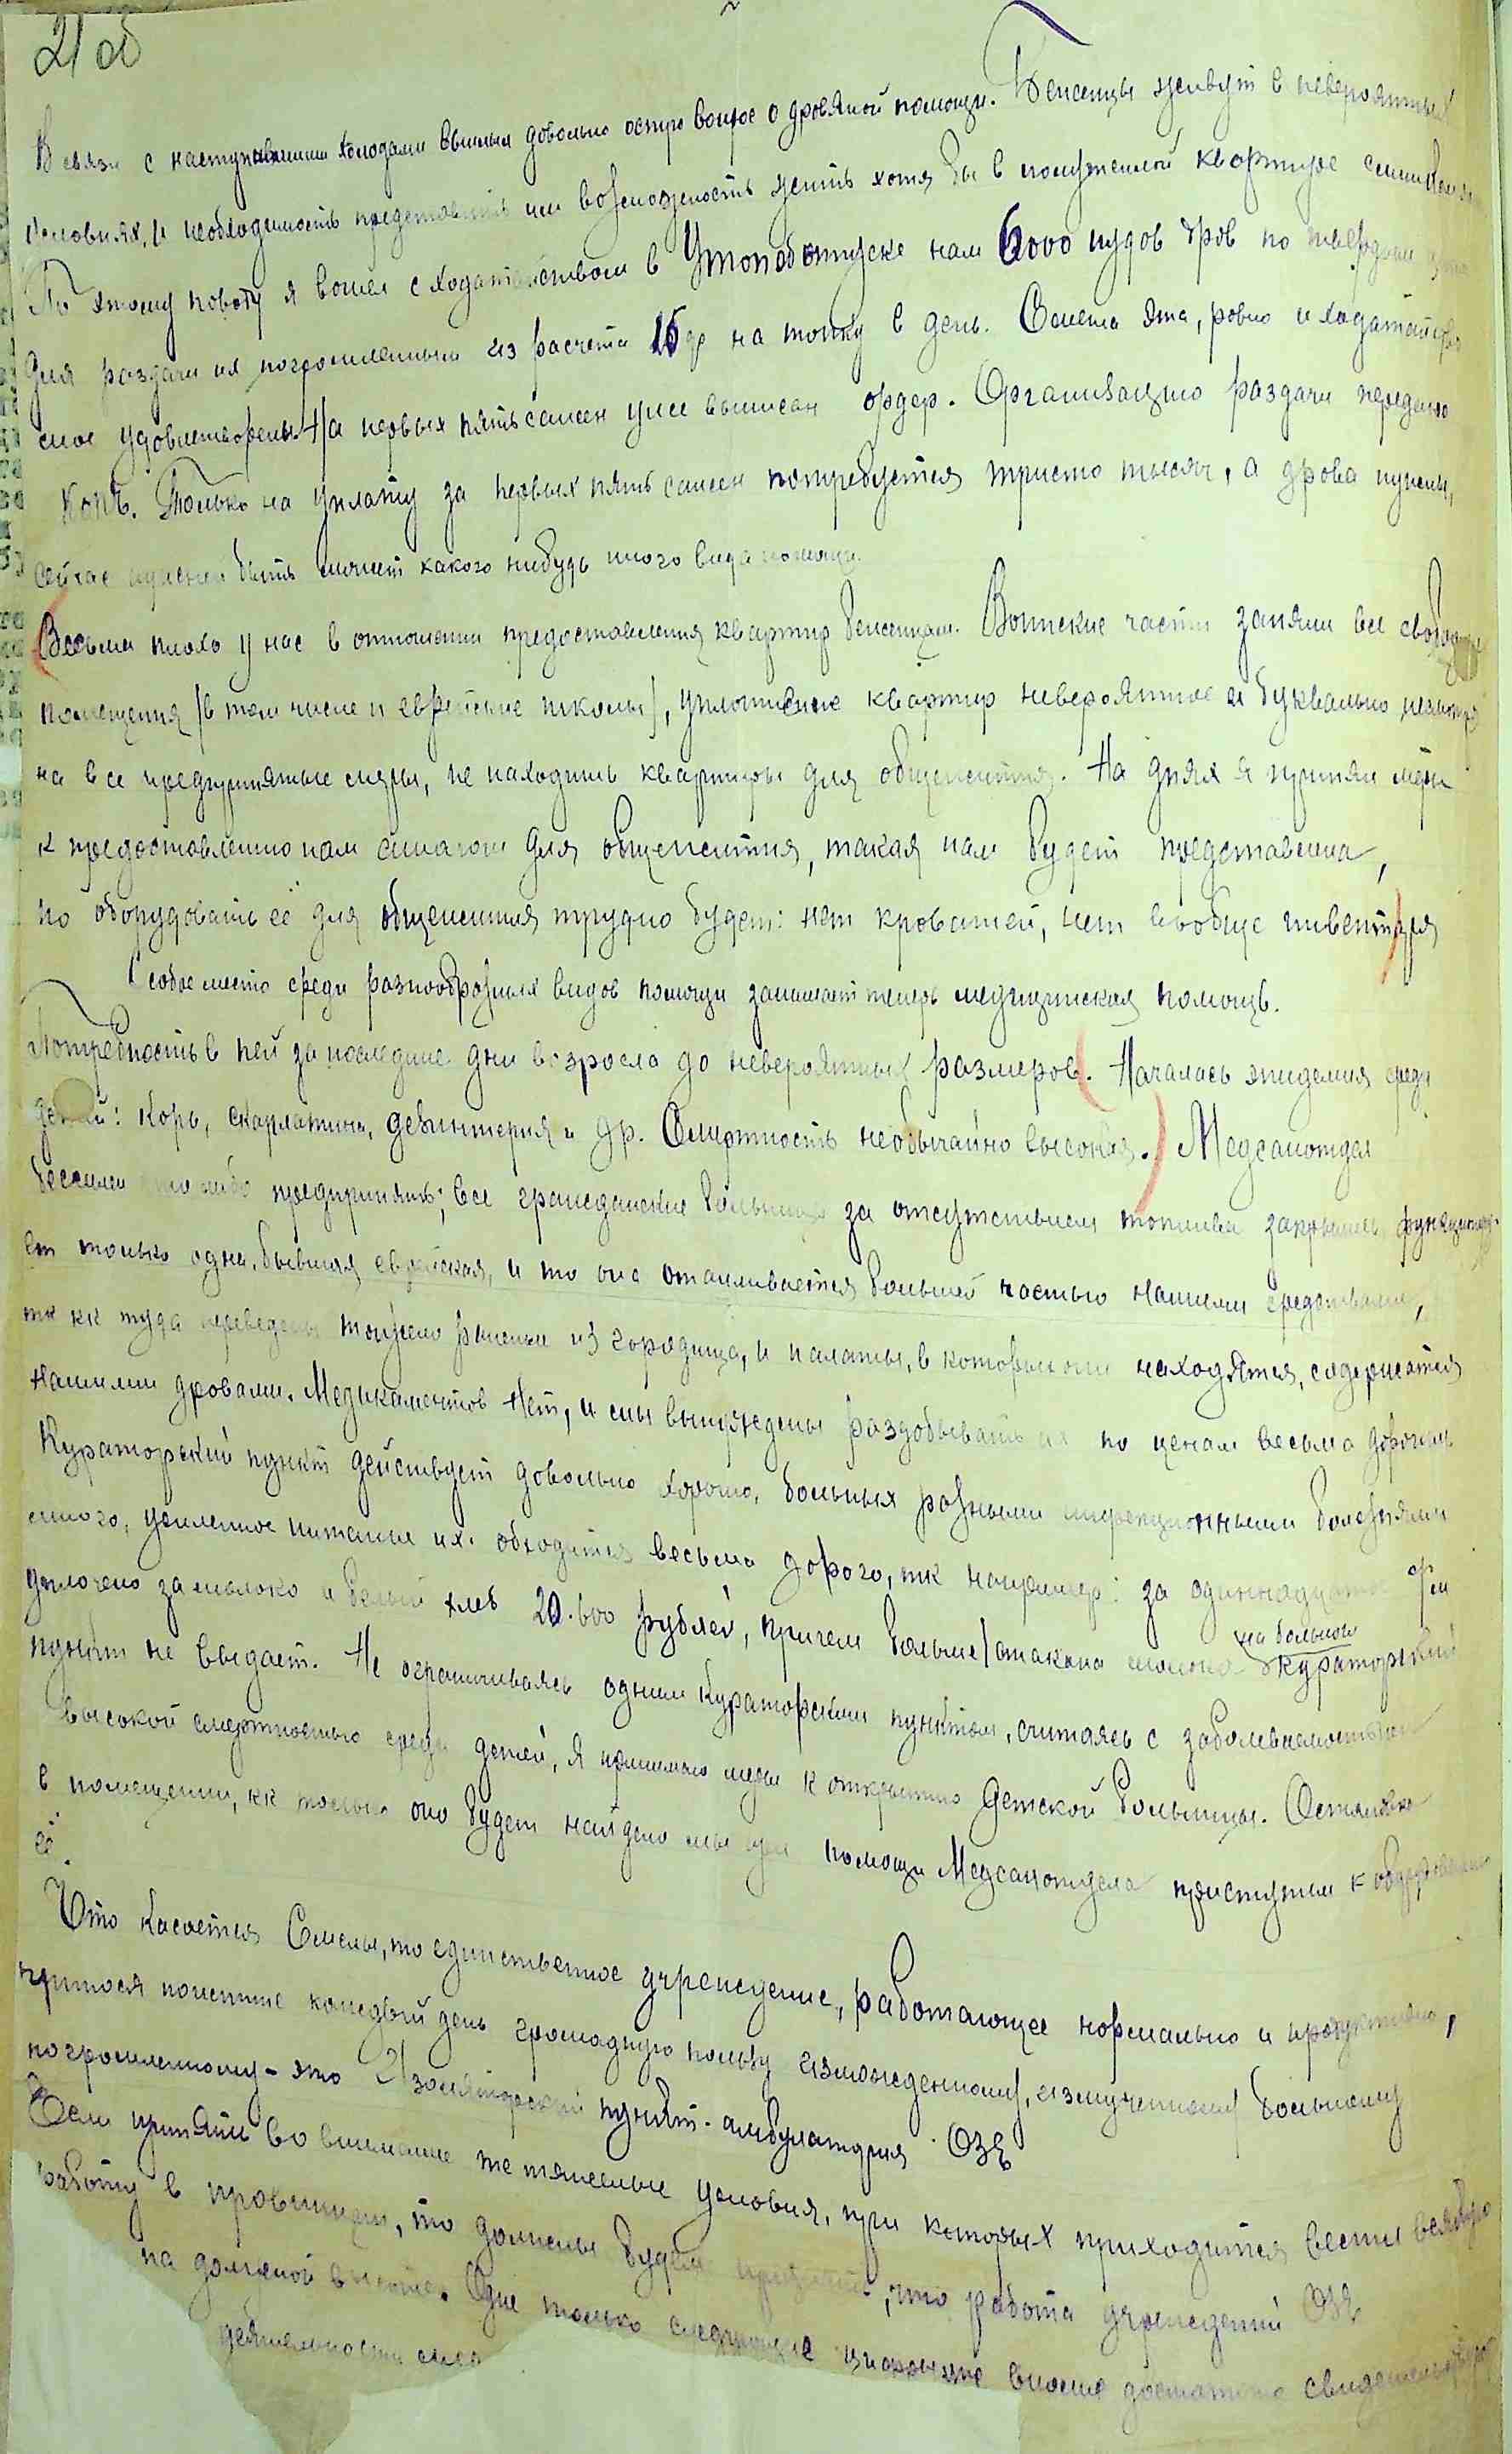 21 об
В связи с наступившими холодами выплыл довольно остро вопрос о дровяной помощи. Беженцы живут в невероятных
условиях, и необходимость предоставить им возможность жить хотя бы в полутеплой квартире
По этому поводу я вошел с ходатайством в Утоп об отпуске нам 6000 пудов дров по твердым
для раздачи их погромленным из расчета 15 ф на топку в день. Смета эта, ровно и ходатайство
мое удовлетворены. На первых пять сажен уже выписан ордер. Организацию раздачи передано
Только на уплату за первых пять сажен потребуется триста тысяч, а дрова нужны,
сейчас нужней быть может какого нибудь иного вида помощи.
Весьма плохо у нас в отношении предоставления квартир беженцам. Воинские части заняли все свободные
помещения (в том числе и еврейские школы), уплотнение квартир невероятное и буквально несмотря
на все предпринятые меры, не находишь квартиры для общежития. На днях я принял меры
к предоставлению нам синагоги для общежития, такая нам будет представлена,
но оборудовать её для общежития трудно будет: нет кроватей, нет вообще инвентаря
Особое место среди разнообразных видов помощи занимает теперь медицинская помощь.
Потребность в ней за последние дни возросла до невероятных размеров. Началась эпидемия среди
детей: корь, скарлатина, дезинтерия и др. Смертность необычайно высокая. Медсанотдел
бессилен что либо предпринять; все гражданские больницы за отсутствием топлива закрылись, функциониру-
ет только одна, бывшая еврейская, и то она отапливается большей частью нашими средствами,
тк кк туда переведены тяжело раненые из Городища, и палаты, в которых они находятся, содержатся
нашими дровами. Медикаментов нет, и мы вынуждены раздобывать их по ценам весьма дорогим
Кураторский пункт действует довольно хорошо, больных разными инфекционными болезнями
много, усиленное питание их обходится весьма дорого, тк например: за одиннадцать
уплочено за молоко и белый хлеб 20.600 рублей, причем больше 1 стакана молока на больного Кураторский
пункт не выдает. Не ограничиваясь одним Кураторским пунктом, считаясь с заболеваемостью и
высокой смертностью среди детей, я принимаю меры к открытию Детской больницы. Остановка
в помещении, кк только оно будет найдено мы при помощи Медсанотдела приступим к оборудованию
её.
Что касается Смелы, то единственное учреждение, работающее нормально и продуктивно,
приносящее каждый день громадную пользу изможденному, измученному больному
погромленному - это Изоляторский пункт-амбулатория ОЗЕ
Если принять во внимание те тяжелые условия, при которых приходится вести всякую
работу в провинции, то должны будем признать, что работа учреждений ОЗЕ
на должной высоте. Одне только следующие цифры уже вполне достаточно
деятельности